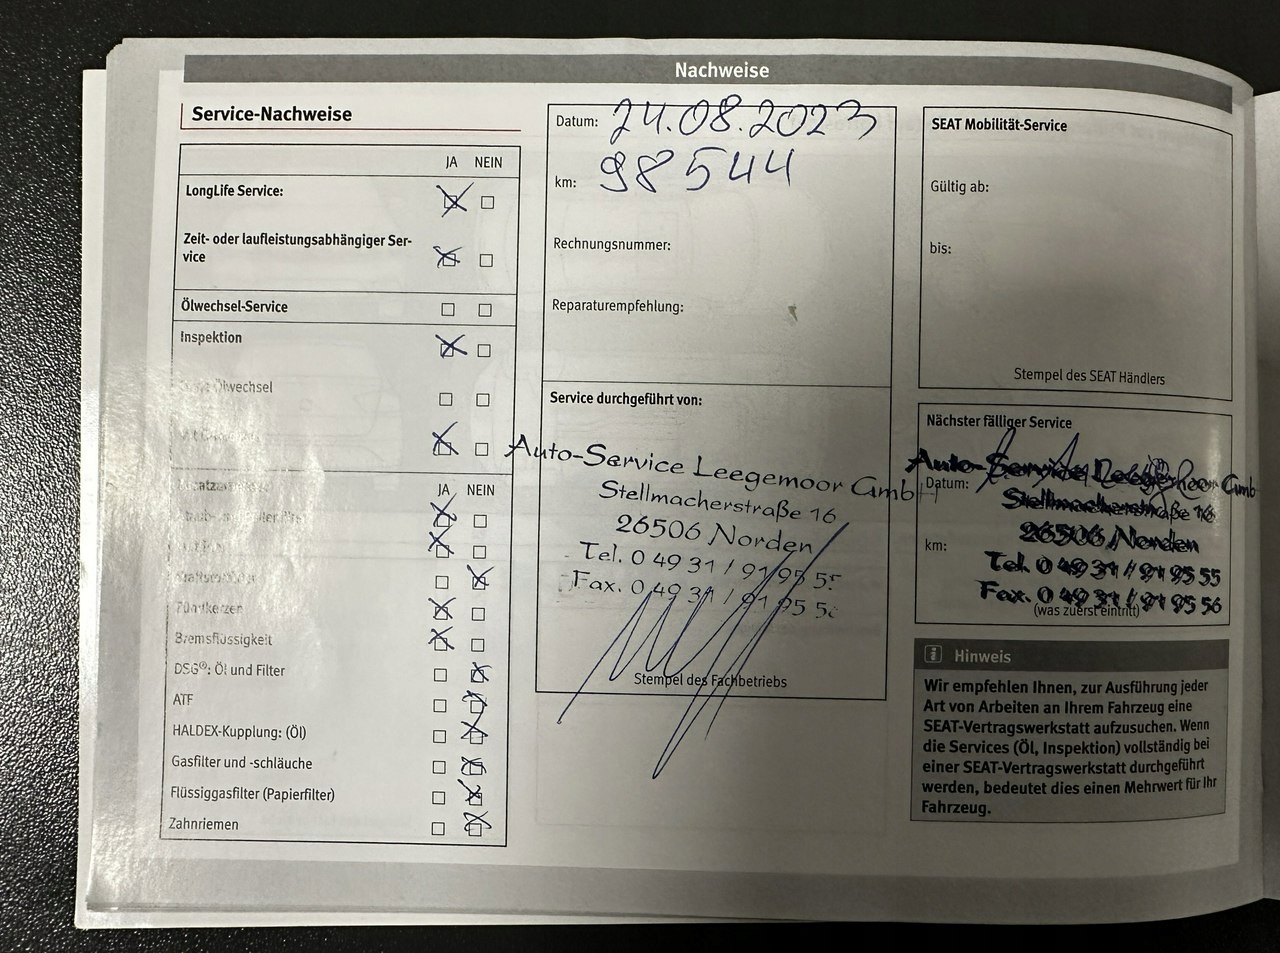 Nachweise
Service-Nachweise
JA NEIN
LongLife Service:
Zeit- oder laufleistungsabhängiger Ser-
vice
Ölwechsel-Service
Inspektion
Ölwechsel
JA NEIN
Zündkerzen
Bremsflüssigkeit
DSG®: Öl und Filter
ATF
HALDEX-Kupplung: (Öl)
Gasfilter und -schläuche
Flüssiggasfilter (Papierfilter)
Zahnriemen
Datum: 24.08.2023
km: 98544
Rechnungsnummer:
Reparaturempfehlung:
Service durchgeführt von:
Auto-Service Leegemoor GmbH
Stellmacherstraße 16
26506 Norden
Tel. 0 49 31 / 91 95 55
Fax. 0 49 31 / 91 95 56
Stempel des Fachbetriebs
SEAT Mobilität-Service
Gültig ab:
bis:
Stempel des SEAT Händlers
Nächster fälliger Service
Auto-Service Leegemoor Gmb
Datum:
Stellmacherstraße 16
26506 Norden
km:
Tel. 0 49 31 / 91 95 55
Fax. 0 49 31 / 91 95 56
(was zuerst eintritt)
i Hinweis
Wir empfehlen Ihnen, zur Ausführung jeder
Art von Arbeiten an Ihrem Fahrzeug eine
SEAT-Vertragswerkstatt aufzusuchen. Wenn
die Services (Öl, Inspektion) vollständig bei
einer SEAT-Vertragswerkstatt durchgeführt
werden, bedeutet dies einen Mehrwert für Ihr
Fahrzeug.